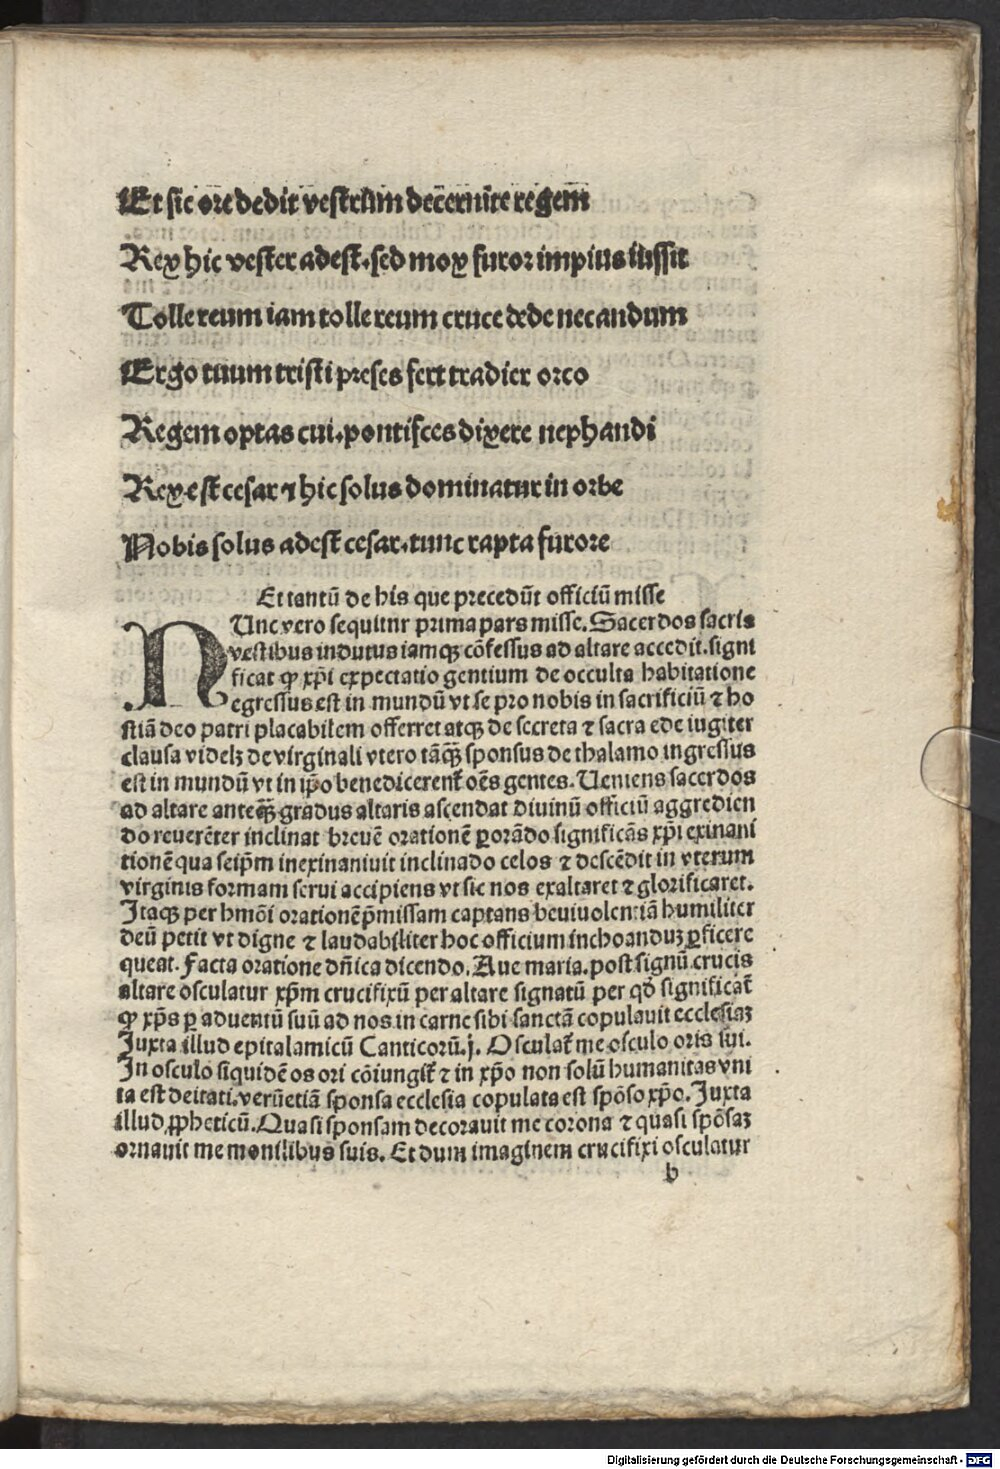 Et sic ore dedit vestrūm dec̄ernite regem̄
Rex hic vester adest. sed mox furor impius iussit
Tolle reum iam tolle reum cruce dede necandum
Ergo tuum tristi preses fert tradier orco
Regem optas cui. pontifces dixere nephandi
Rex est cesar ⁊ hic solus dominatur in orbe
Nobis solus adest cesar. tunc rapta furore
Et tantū de his que precedūt officiū misse
NUnc vero sequitnr prima pars misse. Sacerdos sacris
vestibus indutus iamqꝫ cōfessus ad altare accedit. signi
ficat ꝙ xp̄i expectatio gentium de occulta habitatione
egressus est in mundū vt se pro nobis in sacrificiū ⁊ ho
stiā deo patri placabilem offerret atqꝫ de secreta ⁊ sacra ede iugiter
clausa videlꝫ de virginali vtero tāqꝫ̄ sponsus de thalamo ingressus
est in mundū vt in ip̄o benedicerent᷑ oēs gentes. Ueniens sacerdos
ad altare anteqꝫ̄ gradus altaris ascendat diuinū officiū aggredien
do reuerēter inclinat breuē orationē ꝑorādo significās xp̄i exinani
tionē qua seip̄m inexinaniuit inclinādo celos ⁊ descēdit in vterum
virginis formam serui accipiens vt sic nos exaltaret ⁊ glorificaret.
Itaqꝫ per hmōi orationē p̄missam captans beuiuolentiā humiliter
deū petit vt digne ⁊ laudabiliter hoc officium inchoanduꝫ ꝑficere
queat. Facta oratione dn̄ica dicendo. Aue maria. post signū crucis
altare osculatur xp̄m crucifixū per altare signatū per qd̄ significat᷑
ꝙ xp̄s ꝑ aduentū suū ad nos in carne sibi sanctā copulauit ecclesiaꝫ
Juxta illud epitalamicū Canticorū.j. Osculat᷑ me osculo oris sui.
In osculo siquidē os ori cōiungit᷑ ⁊ in xp̄o non solū humanitas vni
ta est deitati. verūetiā sponsa ecclesia copulata est spōso xp̄o. Juxta
illud ꝓpheticū. Quasi sponsam decorauit me corona ⁊ quasi spōsaꝫ
ornauit me monilibus suis. Et dum imaginem crucifixi osculatur
b
Digitalisierung gefördert durch die Deutsche Forschungsgemeinschaft - DFG